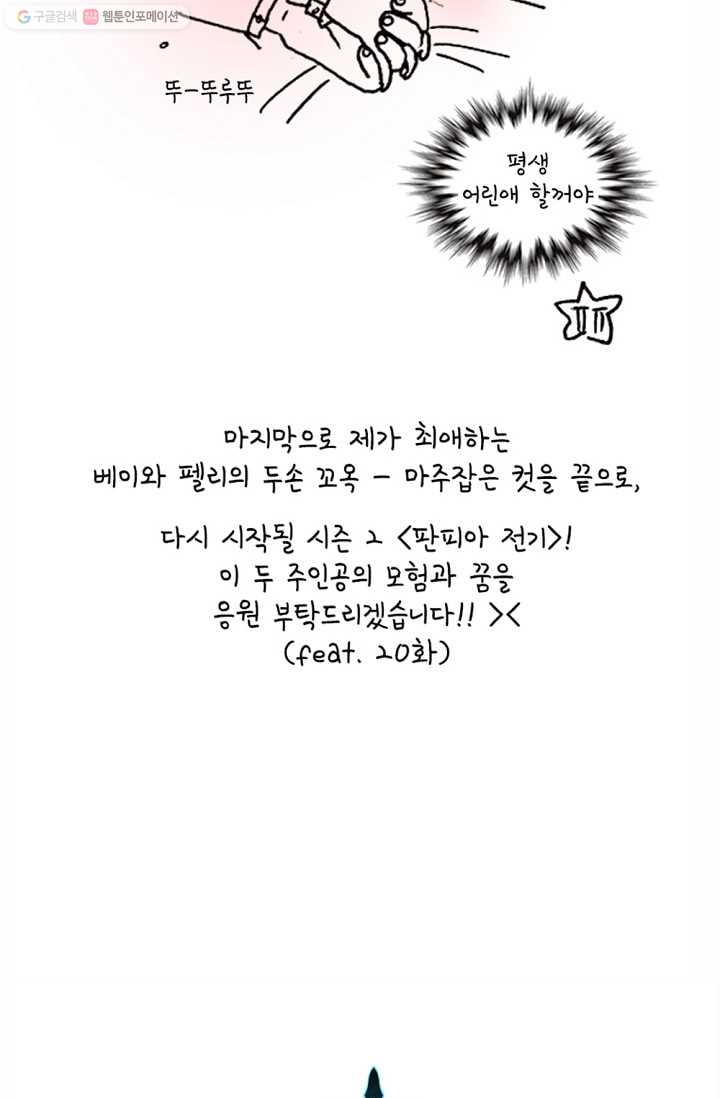 구글검색 웹툰인포메이션
뚜-뚜루뚜
평생
어린애 할꺼야
마지막으로 제가 최애하는
베이와 펠리의 두손 꼬옥 - 마주잡은 컷을 끝으로,
다시 시작될 시즌 2 <판피아 전기>!
이 두 주인공의 모험과 꿈을
응원 부탁드리겠습니다!! ><
(feat. 20화)